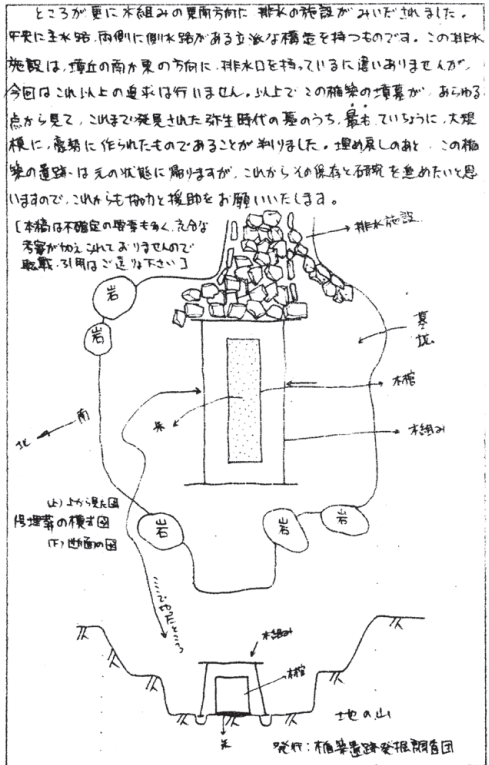 ところが更に木組みの東南方向に排水の施設がみいだされました。
中央に主水路、両側に側水路がある立派な構造を持つものです。この排水
施設は、墳丘の南か東の方向に、排水口を持っているに違いありませんが、
今回はこれ以上の追求は行いません。以上で、この楯築の墳墓が、あらゆる
点から見て、これまで発見された弥生時代の墓のうち、最も、ていちょうに、大規
模に、豪勢に作られたものであることが判りました。埋め戻しのあと、この楯
築の遺跡は元の状態に帰りますが、これからその保存と研究を進めたいと思
いますので、これからも協力と援助をお願いいたします。
[本稿は不確定の要素も多く、充分な
考察が加えられておりませんので
転載・引用はご遠慮下さい]
排水施設
岩
岩
墓
拡
木棺
朱
木組み
南
北
(上)上から見た図
埋葬の模式図
(下)断面の図
岩
岩
岩
木組み
木棺
朱
地の山
発行:楯築遺跡発掘調査団